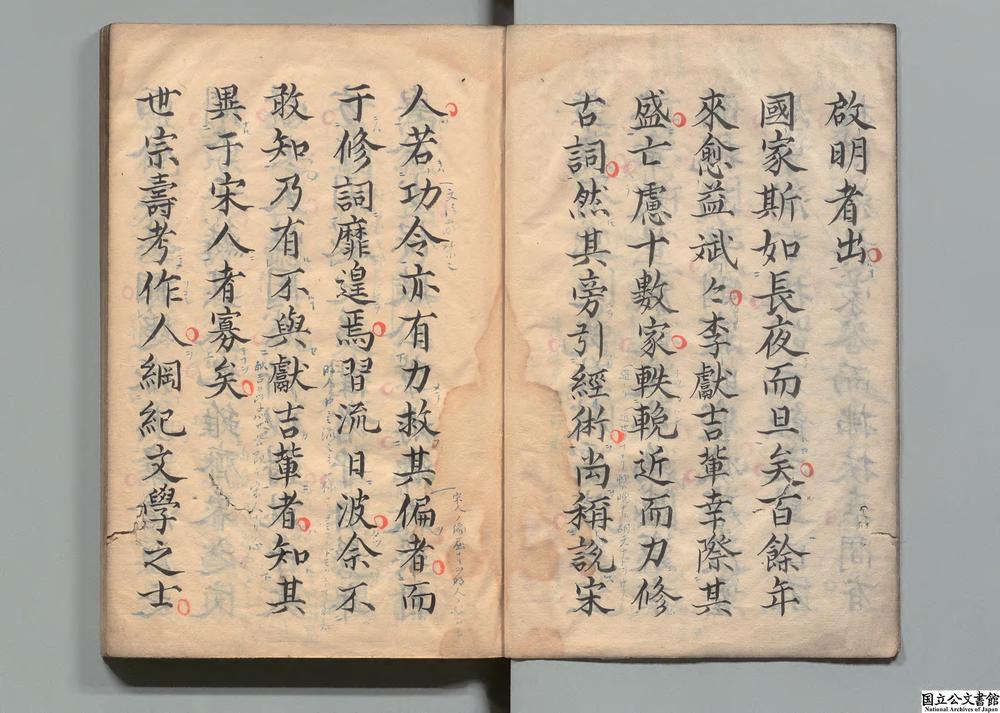 啟明者出
國家斯如長夜而旦矣百餘年
來愈益斌々李獻吉軰幸際其
盛亡慮十數家軼輓近而力修
古詞然其旁引經術尚稱説宋
人若功令亦有力救其偏者而
于修詞靡遑焉習流日波余不
敢知乃有不與獻吉軰者知其
異于宋人者寡矣
世宗壽考作人綱紀文學之士
国立公文書館
National Archives of Japan